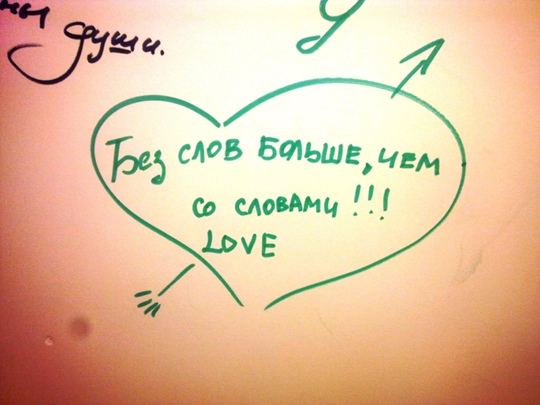 души.
Без слов больше, чем
со словами!!!
LOVE